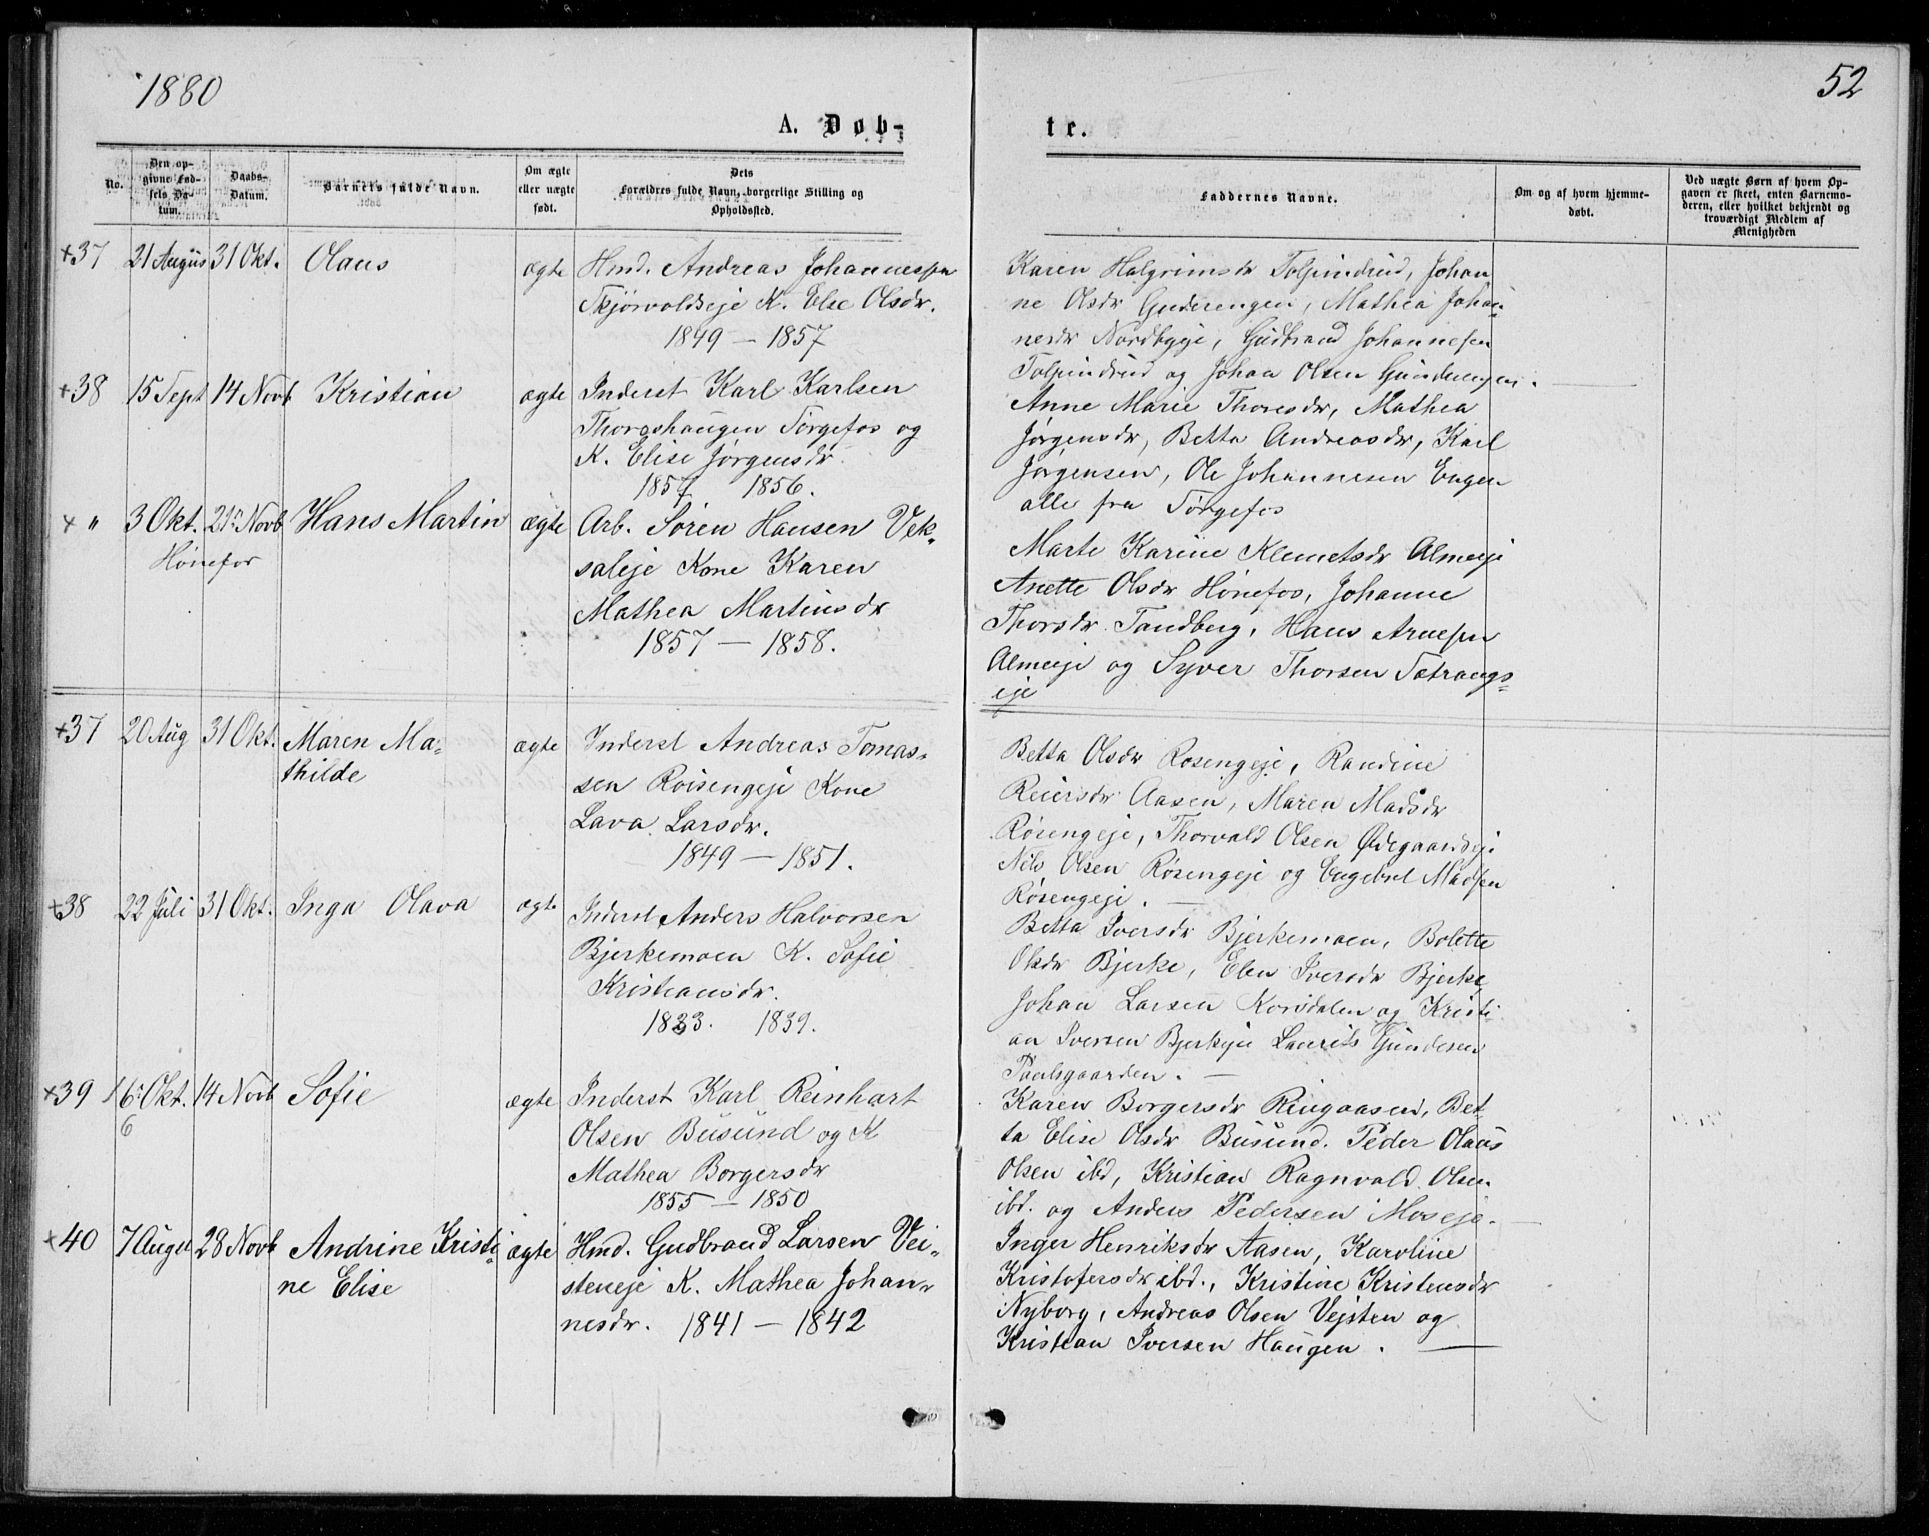 1880
52
A. Døb-
te.
No.
Den op-
givne Fød-
sels Da-
tum.
Daabs-
Datum.
Barnets fulde Navn.
Om ægte
eller uægte
født.
Dets
Forældres fulde Navn, borgerlige Stilling og
Opholdssted.
Faddernes Navne.
Om og af hvem hjemme-
døbt.
Ved uægte Børn af hvem Op-
gaven er skeet, enten Barnemo-
deren, eller hvilket bekjendt og
troværdigt Medlem af
Menigheden
+37 21 Augus 31 Okt. Olaus ægte Hmd. Andreas Johannessen
Skjørvoldseje K. Else Olsdr.
1849 — 1857
Karen Halgrimsdr Tolpindrud, Johan
ne Olsdr Gunderengen, Mathea Johan-
nesdr Nordbyeje, Gudbrand Johannesen
Tolpindrud og Johan Olsen Gunderengen.
+38 15 Sept 14 Novb Kristian ægte Inderst Karl Karlsen
Thoreshaugen Sørgefos og
K. Elise Jørgensdr
1857 1856.
Anne Marie Thoresdr, Mathea
Jørgensdr, Betta Andreasdr, Karl
Jørgensen, Ole Johannesen Engen
alle fra Sørgefos
+ " 3 Okt. 21 Novb Hans Martin ægte Arb. Søren Hansen Vek-
Hønefos
saleje Kone Karen
Mathea Martinsdr
1857 — 1858.
Marte Karine Klemetsdr Almeje
Anette Olsdr Hønefos, Johanne
Thorsdr Tandberg, Hans Arnesen
Almeeje og Syver Thorsen Sætrangs-
eje
+37 20 Aug 31 Okt. Maren Ma-
thilde
ægte Inderst Andreas Tomas-
sen Røisengeje Kone
Lava Larsdr.
1849 — 1851.
Betta Olsdr Røsengeje, Randine
Reiersdr Aasen, Maren Madsdr
Røsengeje, Thorvald Olsen Ødegaardseje
Nils Olsen Røsengeje og Engebret Madsen
Røsengeje. —
+38 22 Juli 31 Okt. Inga Olava ægte Inderst Anders Halvorsen
Bjerkemoen K. Sofie
Kristiansdr.
1833. 1839.
Betta Iversdr Bjerkemoen, Bolette
Olsdr Bjerke, Elen Iversdr Bjerke,
Johan Larsen Korsdalen og Kristi
an Iversen Bjerkeje Laurits Gundersen
Paulsgaarden. —
+39 16 Okt. 14 Novb Sofie ægte Inderst Karl Reinhart
6
Olsen Busund og K
Mathea Borgersdr
1855 — 1850
Karen Borgersdr Ringaasen, Bet-
ta Elise Olsdr Busund. Peder Olaus
Olsen ibd, Kristian Ragnvald Olsen
ibd. og Anders Pedersen Moseje. —
+40 7 August 28 Novb Andrine Kristi
ne Elise
ægte Hmd. Gudbrand Larsen Vei-
steneje K. Mathea Johan-
nesdr. 1841 — 1842
Inger Henriksdr Aasen, Karoline
Kristofersdr ibd., Kristine Kristensdr
Nyborg, Andreas Olsen Vejsten og
Kristian Iversen Haugen. —